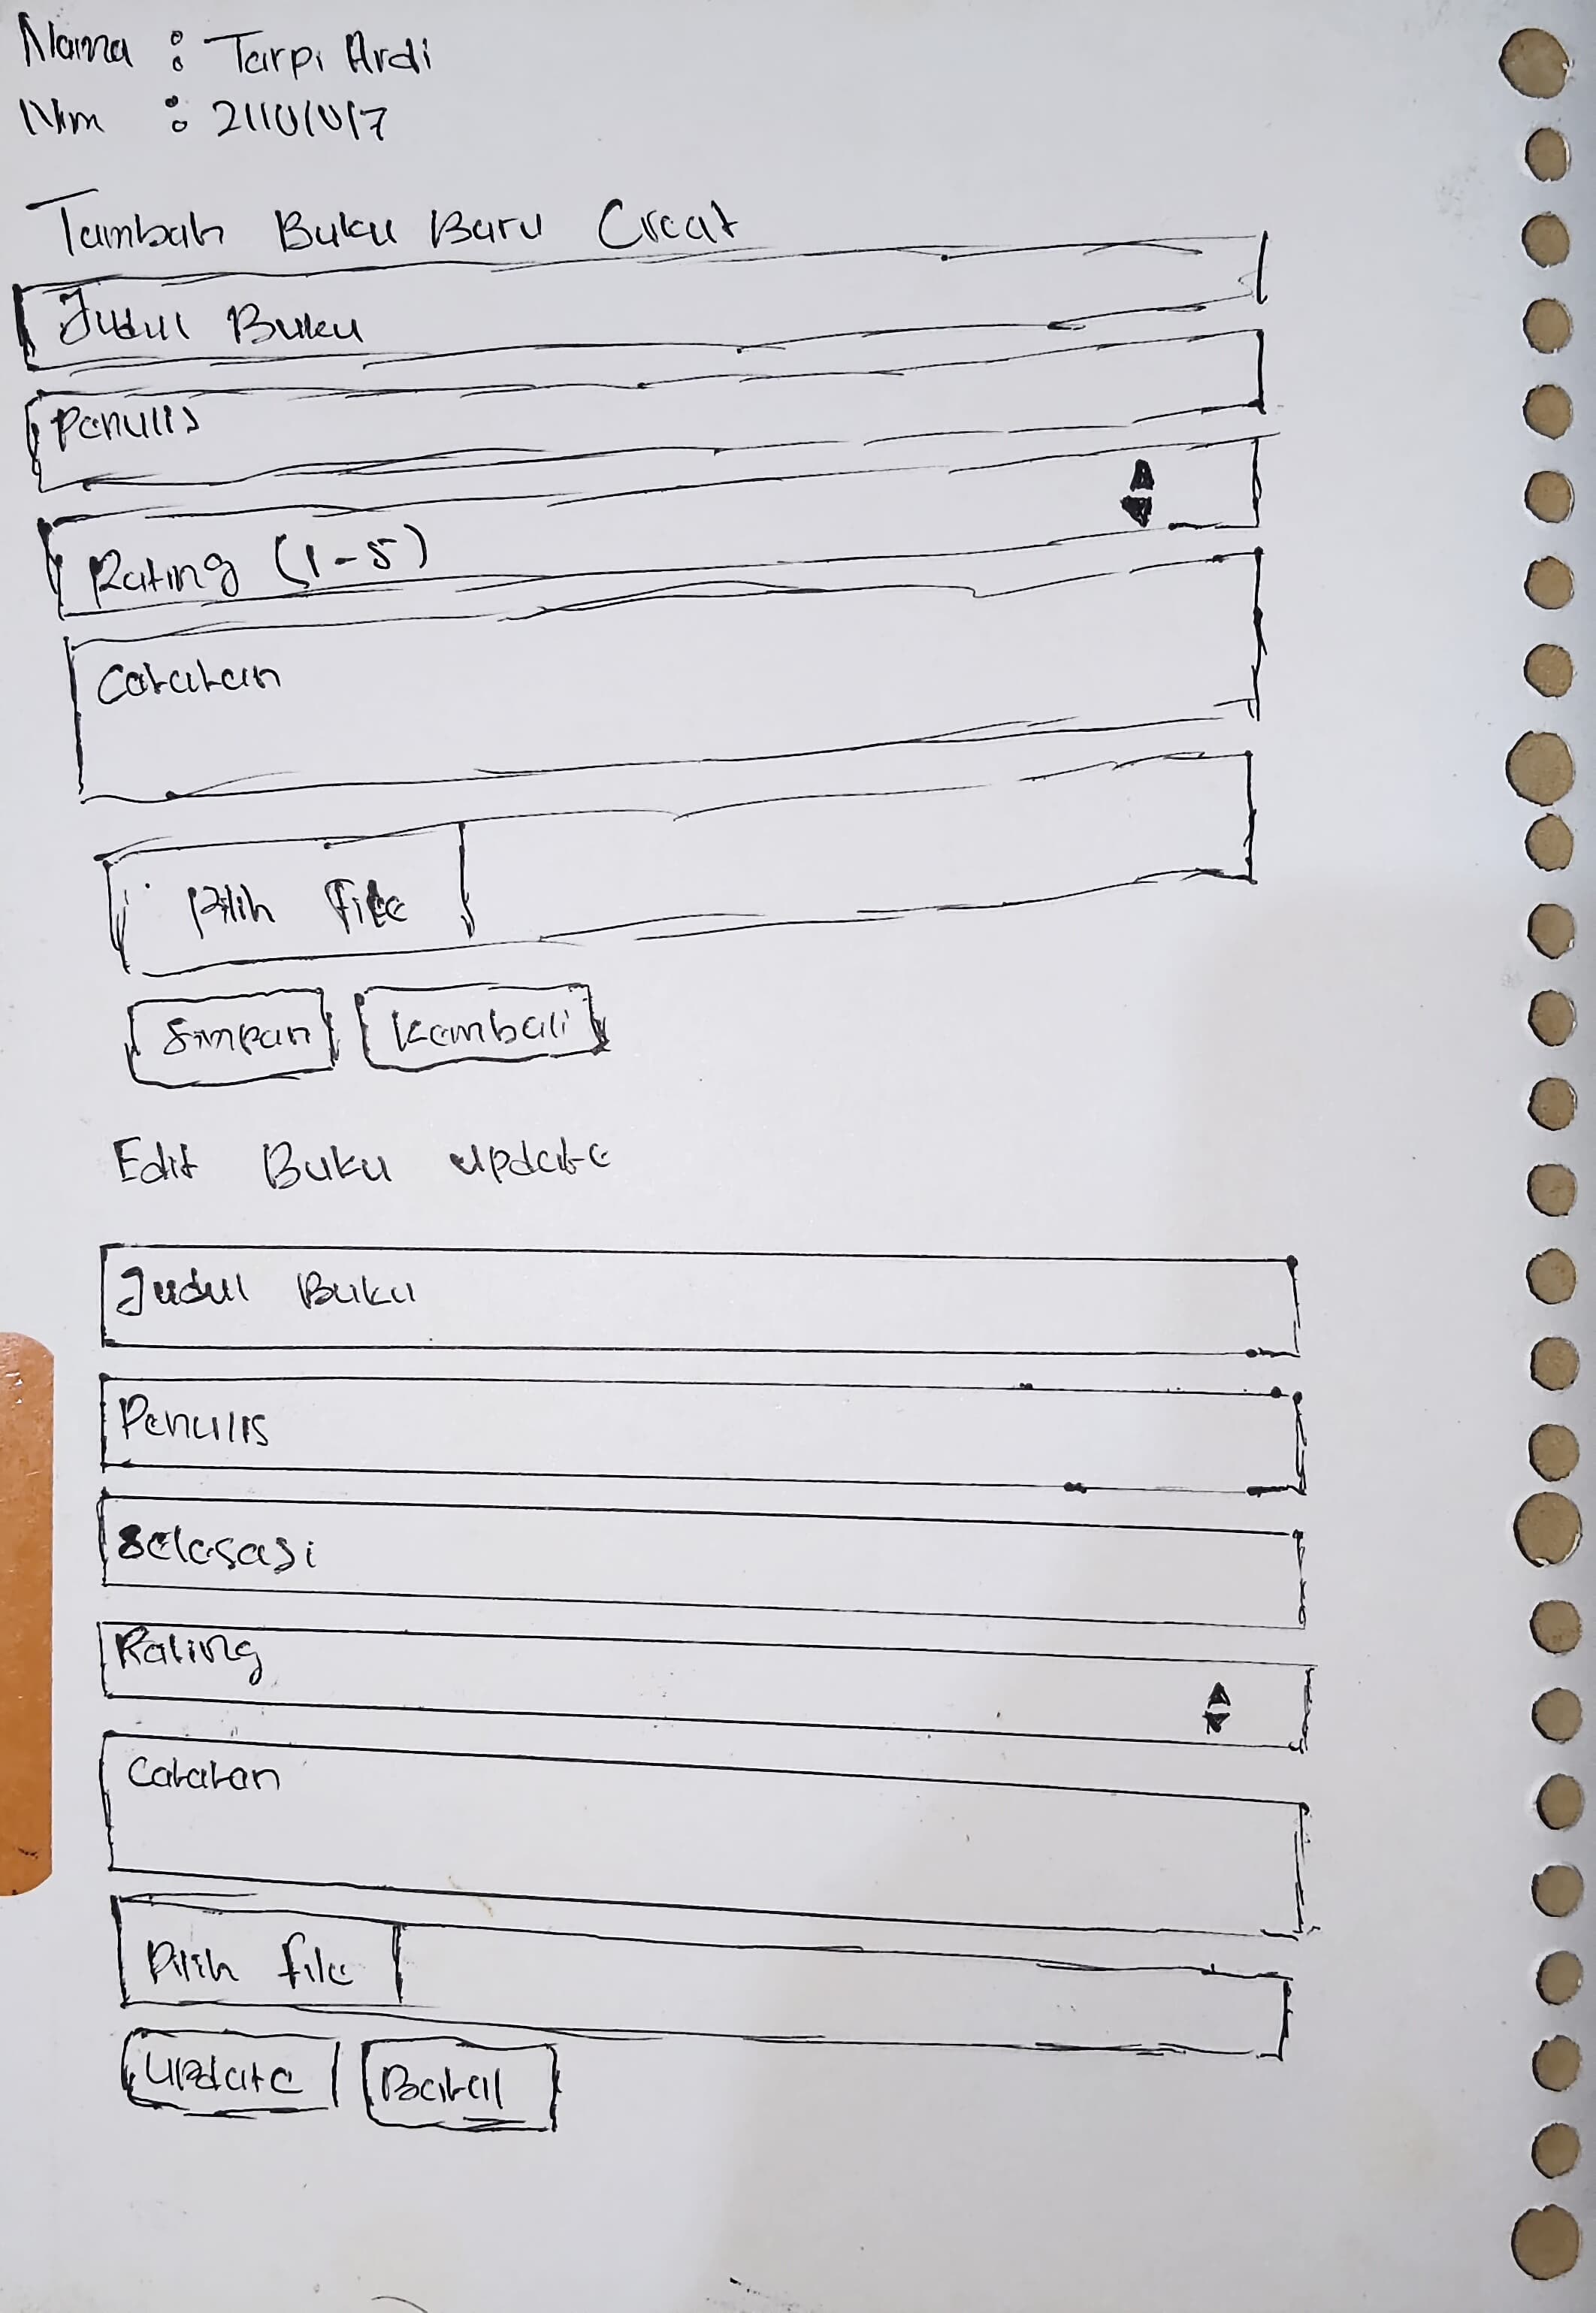 Nama : Tarpi Ardi
Nim : 21101017
Tambah Buku Baru Creat
Judul Buku
Penulis
Rating (1-5)
Catatan
Pilih File
Simpan Kembali
Edit Buku update
Judul Buku
Penulis
Selesasi
Rating
Catatan
Pilih file
Update Batal